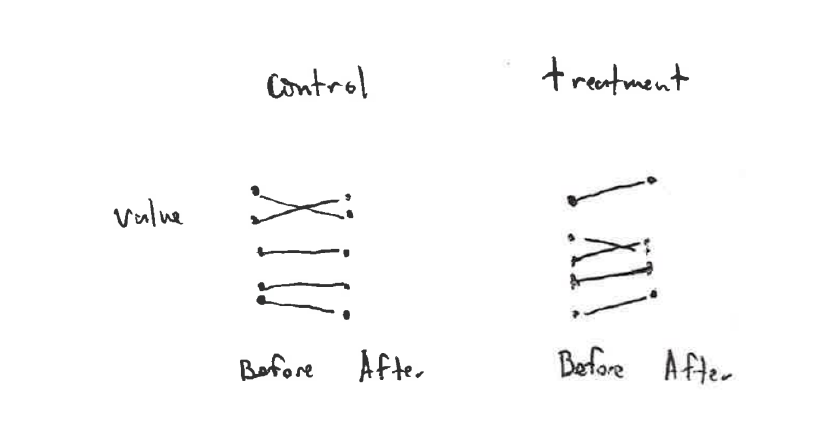 Control treatment
Value
Before After Before After